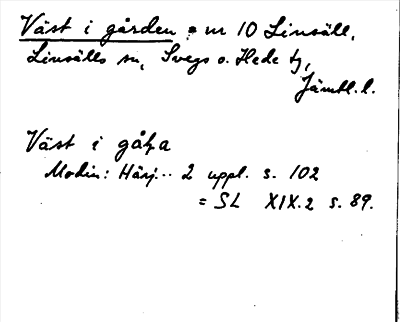 Väst i gården = nr 10 Linsäll,
Linsälls sn, Svegs o. Hede tg,
Jämtl. l.
Väst i gåḷa
Modin: Härj... 2 uppl. s. 102
= SL XIX.2 s. 89.